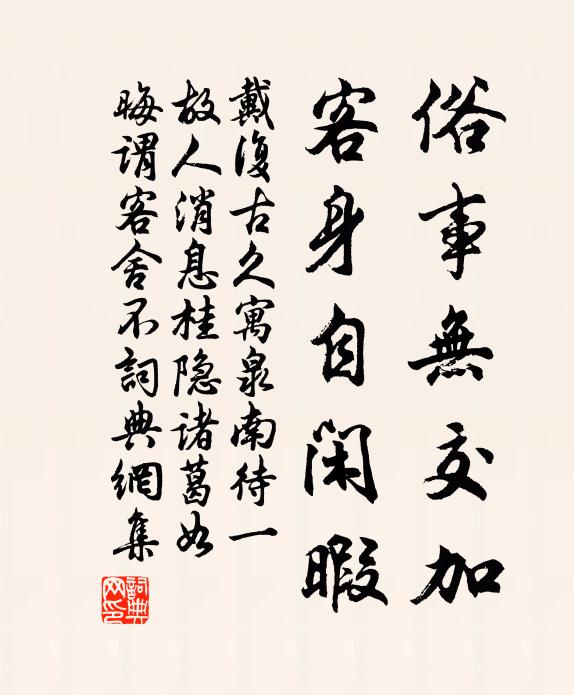 俗事無交加
客身自閑暇
戴復古久寓泉南待一
故人消息桂隐諸葛如
晦謂客舍不詞典網集
詞典网印